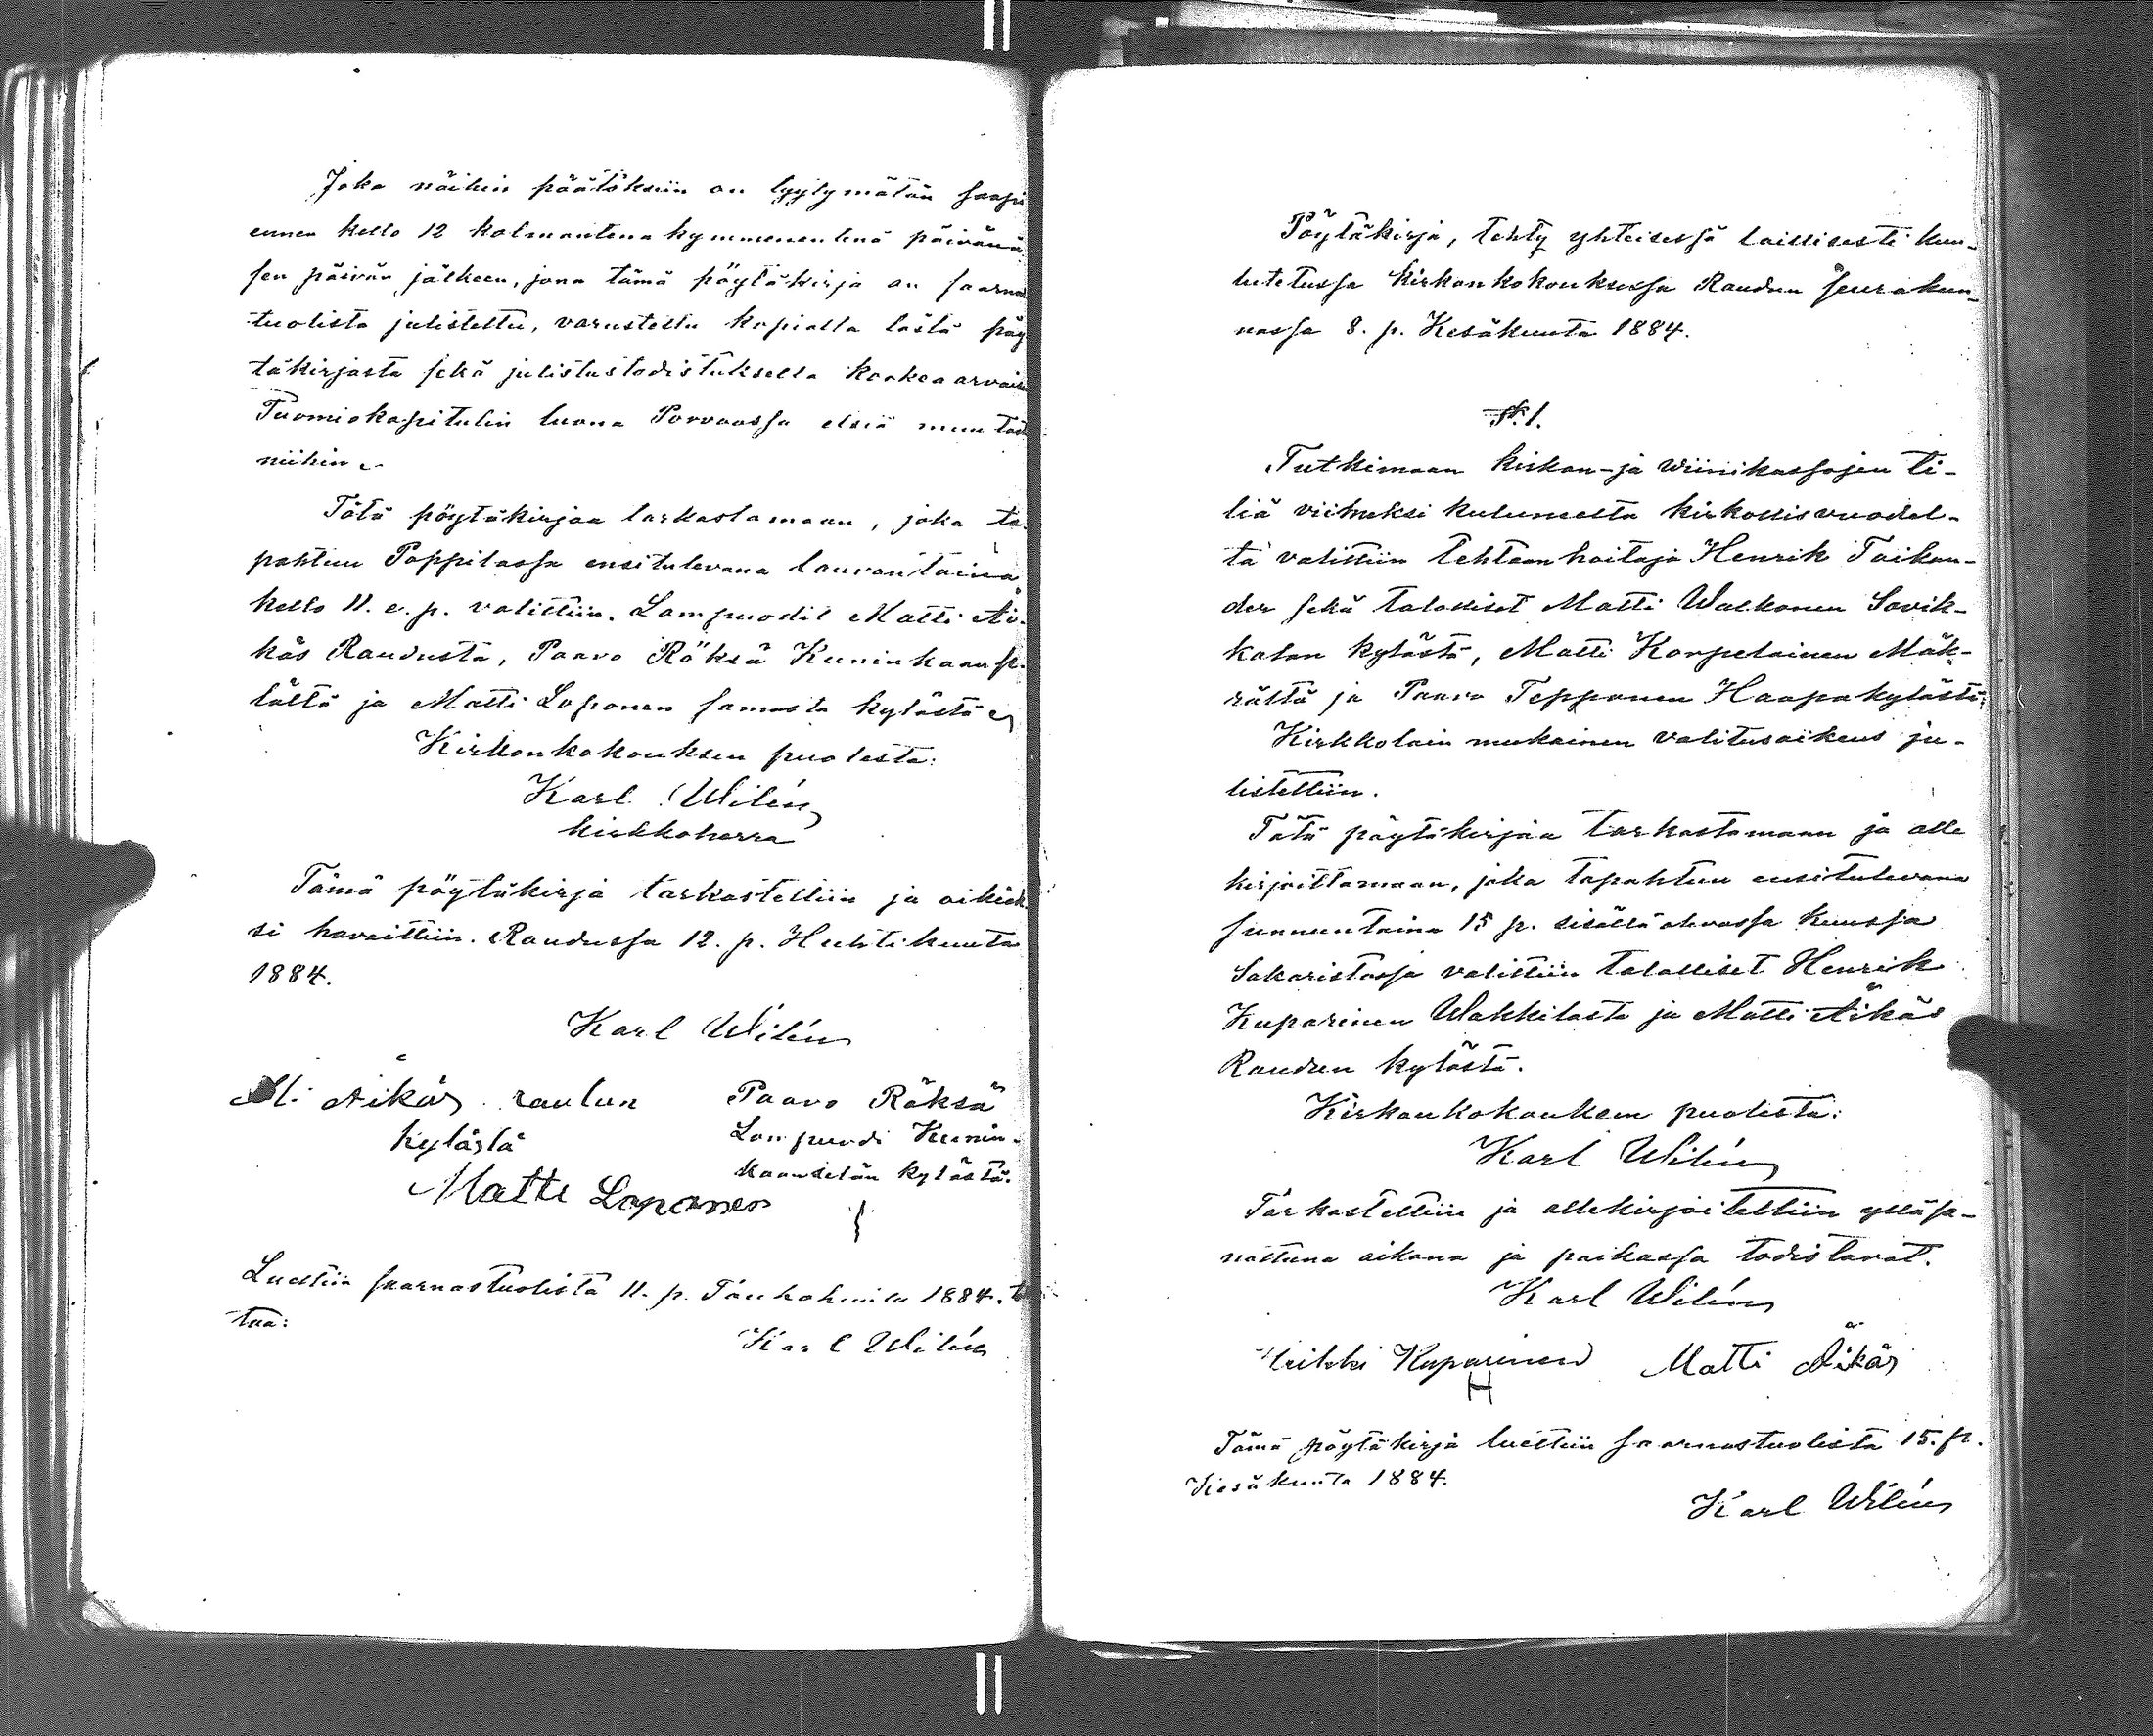 Joka näihin päätöksiin on tyytymätön saapi
ennen kello 12 kolmantena kymmenentenä päivänä
sen päivän jälkeen, jona tämä pöytäkirja on saarna
tuolista julistettu, varustettu kopialla tästä pöy
täkirjasta sekä julistustodistuksella korkea arvoisen
Tuomiokapitulin luona Porvoossa etsiä muutosta
niihin.
Tätä pöytäkirjaa tarkastamaan, joka ta-
pahtuu Pappilassa ensitulevana lauvantaina
kello 11. e. p. valittiin. Lampuodit Matti Äi-
käs Raudusta, Paavo Röksä Kuninkaanse-
lältä ja Matti Loponen samasta kylästä
Kirkonkokouksen puolesta:
Karl Wilén
kirkkoherra
Tämä pöytäkirja tarkastettiin ja oikiak
si havaittiin. Raudussa 12. p. Huhtikuuta
1884.
Karl Wilén
M: Äikäs raulun Paavo Röksä
kylästä Lampuodi Kunin-
kaanselän kylästä.
Matti Loponen
Luettiin saarnastuolista 11. p. Toukokuuta 1884. to
taa:
Karl Wilén
Pöytäkirja, tehty yhteisessä laillisesti kuu-
lutetussa kirkonkokouksessa Raudun seurakun-
nassa 8. p. Kesäkuuta 1884.
§. 1.
Tutkimaan kirkon- ja wiinikassojen ti-
liä viimeksi kuluneelta kirkollisvuodel-
ta valittiin tehtaanhoitaja Henrik Taikan-
der sekä talolliset Matti Walkonen Sovik-
kalan kylästä, Matti Korpelainen Mäk-
rältä ja Paavo Tepponen Haapakylästä.
Kirkkolain mukainen valitusoikeus ju-
listettiin.
Tätä pöytäkirjaa tarkastamaan ja alle
kirjoittamaan, joka tapahtuu ensitulevana
sunnuntaina 15 p. sisällä olevassa kuussa
Sakaristossa valittiin talolliset Henrik
Kuparinen Wakkilasta ja Matti Äikäs
Raudun kylästä.
Kirkonkokouksen puolesta:
Karl Wilén
Tarkastettiin ja allekirjoitettiin ylläsa-
nottuna aikana ja paikassa todistavat.
Karl Wilén
Heikki Kuparinen Matti Äikäs
H
Tämä pöytäkirja luettiin saarnastuolista 15. p.
Kesäkuuta 1884.
Karl Wilén